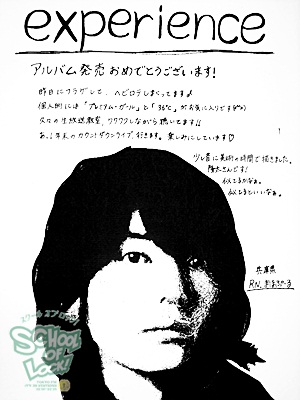 experience
アルバム発売おめでとうございます!
昨日にフラゲして、ヘビロテしまくってます♪
個人的には『プレミアム・ガール』と『36℃』がお気に入りです
久々の生放送教室、ワクワクしながら聴いてます!!
あ、年末のカウントダウンライブ、行きます。楽しみにしています♡
ツレ君に美術の時間で描きました。
陽太さんです!
似てるかなぁ。
似てるといいなぁ。
兵庫県
RN.
スクールオブロック!
SCHOOL
OF
LOCK!